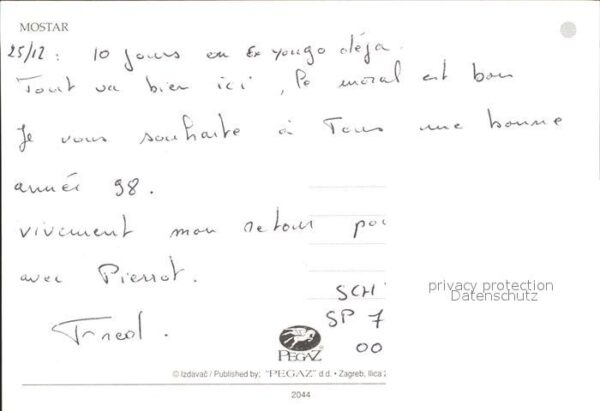 MOSTAR
25/12 : 10 jours en Ex yougo déjà.
Tout va bien ici, le moral est bon
Je vous souhaite à Tous une bonne
année 98.
vivement mon retour
avec Pierrot.
Fred.
SCH
SP 7
00
privacy protection
Datenschutz
PEGAZ
© Izdavač / Published by: "PEGAZ" d.d. • Zagreb, Ilica 2
2044